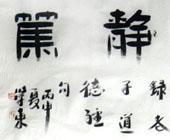 静篤
録老
子道
德經
句
丙申
夏
東